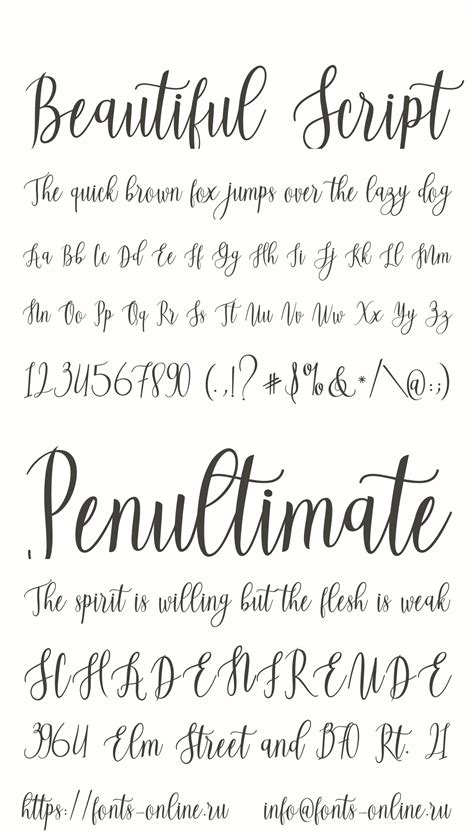 Beautiful Script
The quick brown fox jumps over the lazy dog
Aa Bb Cc Dd Ee Ff Gg Hh Ii Jj Kk Ll Mm
Nn Oo Pp Qq Rr Ss Tt Uu Vv Ww Xx Yy Zz
1234567890 (.,!? #$%&*/\@:;)
Penultimate
The spirit is willing but the flesh is weak
SCHADENFREUDE
3964 Elm Street and 1370 Rt. 21
https://fonts-online.ru info@fonts-online.ru